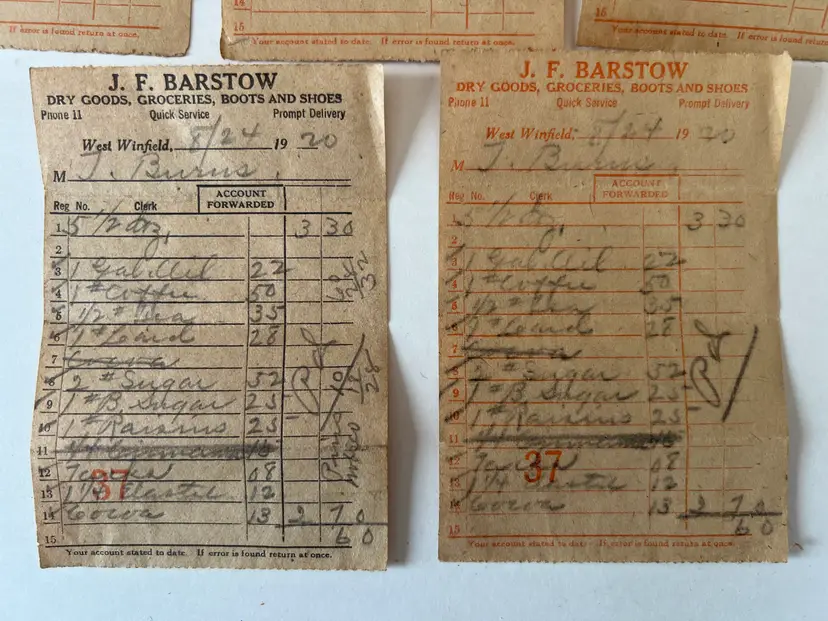 14
15
If error is found return at once.
Your account stated to date. If error is found return at once.
15
Your account stated to date. If error is found return at once.
J. F. BARSTOW
DRY GOODS, GROCERIES, BOOTS AND SHOES
Phone 11 Quick Service Prompt Delivery
West Winfield, 8/24 1920
M J. Burns
Reg No. Clerk ACCOUNT FORWARDED
1 5 1/2 doz, 3 30
2
3 1 Gal Oil 22
4 1 # Coffee 50
5 1/2 # Tea 35
6 1 # Lard 28
7 Cocoa
8 2 # Sugar 52
9 1 # B Sugar 25
10 1 # Raisins 25
11
12 Tacks 08
13 1 1/4 Elastic 12
14 Cocoa 13 2 70
15 60
37
Pd
Your account stated to date. If error is found return at once.
J. F. BARSTOW
DRY GOODS, GROCERIES, BOOTS AND SHOES
Phone 11 Quick Service Prompt Delivery
West Winfield, 8/24 1920
M J. Burns
Reg No. Clerk ACCOUNT FORWARDED
1 5 1/2 doz, 3 30
2
3 1 Gal Oil 22
4 1 # Coffee 50
5 1/2 # Tea 35
6 1 # Lard 28
7 Cocoa
8 2 # Sugar 52
9 1 # B Sugar 25
10 1 # Raisins 25
11
12 Tacks 08
13 1 1/4 Elastic 12
14 Cocoa 13 2 70
15 60
37
Pd
Your account stated to date. If error is found return at once.